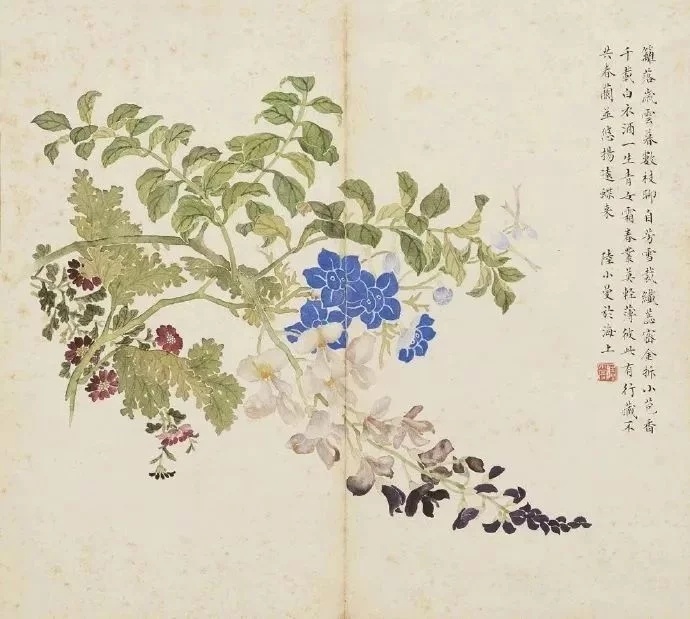 籬落歲雲暮數枝聊自芳雪裁纖蕊密金拆小苞香
千載白衣酒一生青女霜春叢莫輕薄彼此有行藏不
共春蘭並悠揚遠蝶來 陸小曼於海上